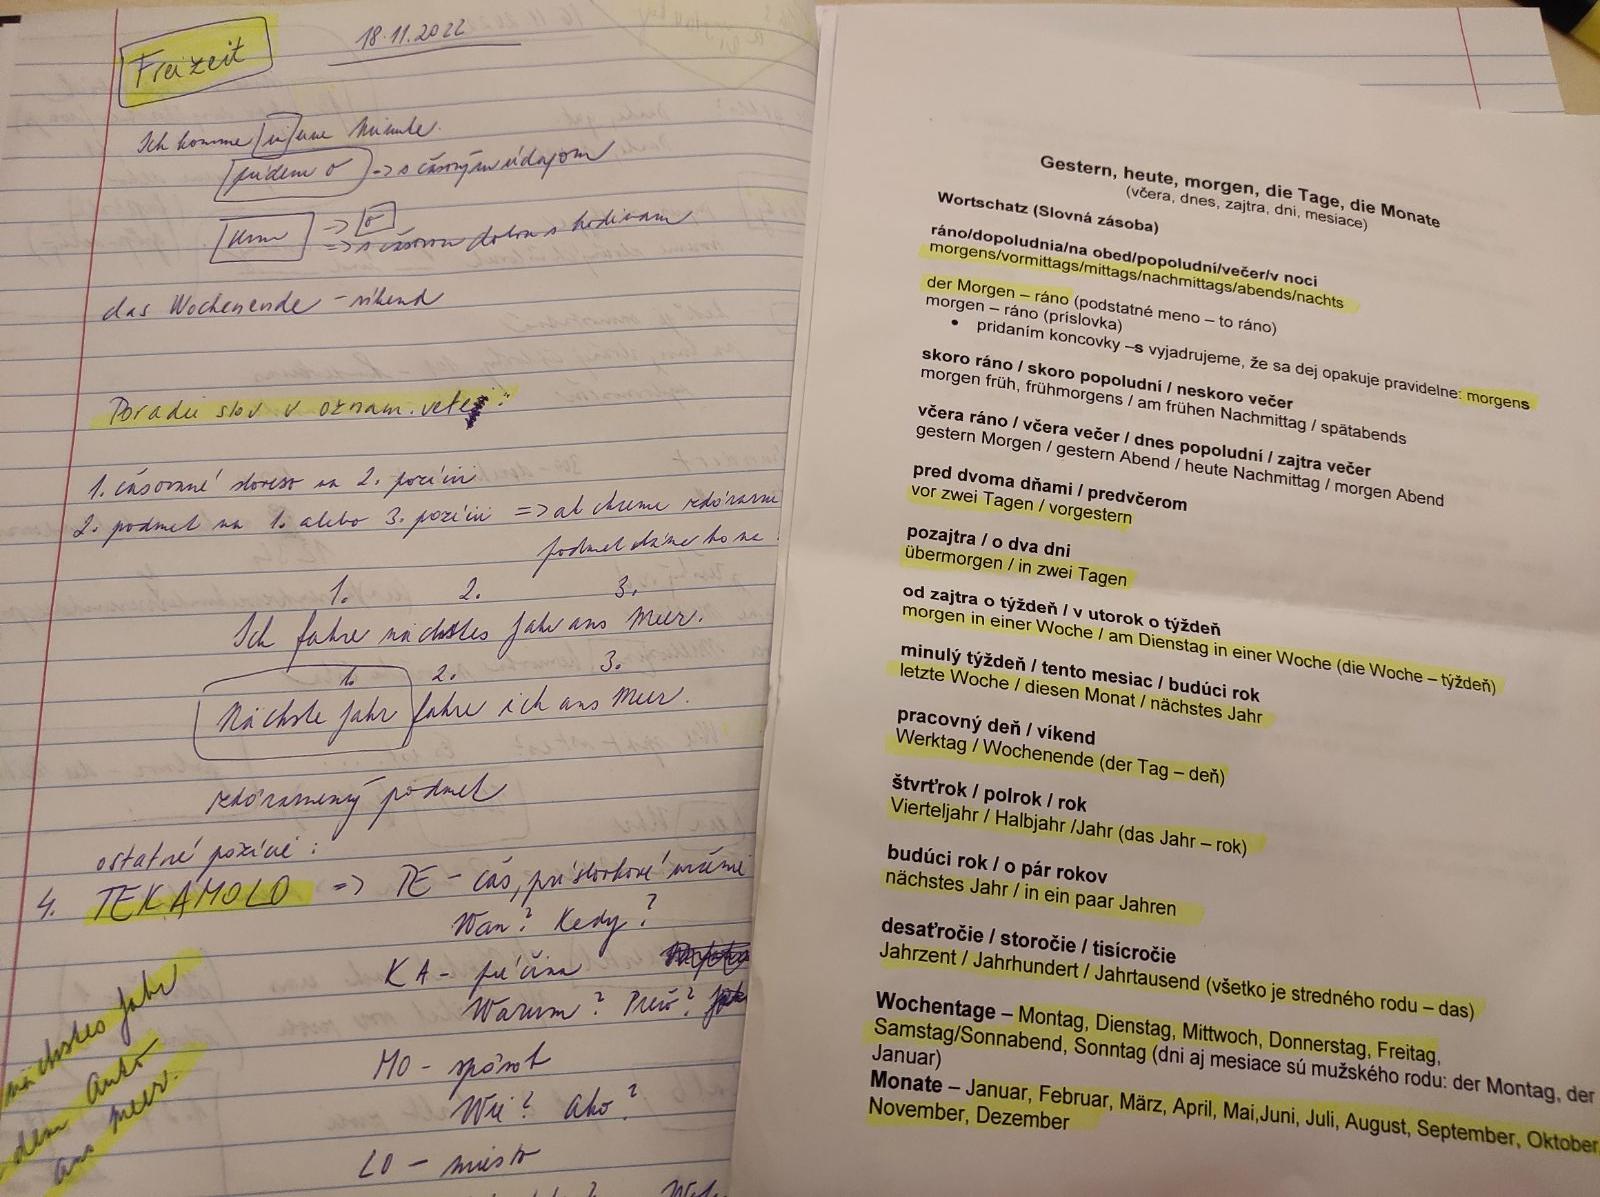 Freizeit
18.11.2022
Ich komme in eine Minute.
prídem o -> s časovým údajom
um => o
=> s časovou dobou s hodinam
das Wochenende - víkend
Poradie slov v oznam. vete:
1. časované sloveso na 2. pozícii
2. podmet na 1. alebo 3. pozícii => ak chceme zdôrazniť
podmet dáme ho na
1. 2. 3.
Ich fahre nächstes Jahr ans Meer.
1. 2. 3.
Nächste Jahr fahre ich ans Meer.
zdôraznený podmet
ostatné pozície:
4. TEKAMOLO => TE - čas, príslovkové určenie
Wan? Kedy?
KA - príčina
Warum? Prečo?
MO - spôsob
Wie? Ako?
LO - miesto
nächstes Jahr
dem Auto
ans meer.
Gestern, heute, morgen, die Tage, die Monate
(včera, dnes, zajtra, dni, mesiace)
Wortschatz (Slovná zásoba)
ráno/dopoludnia/na obed/popoludní/večer/v noci
morgens/vormittags/mittags/nachmittags/abends/nachts
der Morgen – ráno (podstatné meno – to ráno)
morgen – ráno (príslovka)
• pridaním koncovky –s vyjadrujeme, že sa dej opakuje pravidelne: morgens
skoro ráno / skoro popoludní / neskoro večer
morgen früh, frühmorgens / am frühen Nachmittag / spätabends
včera ráno / včera večer / dnes popoludní / zajtra večer
gestern Morgen / gestern Abend / heute Nachmittag / morgen Abend
pred dvoma dňami / predvčerom
vor zwei Tagen / vorgestern
pozajtra / o dva dni
übermorgen / in zwei Tagen
od zajtra o týždeň / v utorok o týždeň
morgen in einer Woche / am Dienstag in einer Woche (die Woche – týždeň)
minulý týždeň / tento mesiac / budúci rok
letzte Woche / diesen Monat / nächstes Jahr
pracovný deň / víkend
Werktag / Wochenende (der Tag – deň)
štvrťrok / polrok / rok
Vierteljahr / Halbjahr /Jahr (das Jahr – rok)
budúci rok / o pár rokov
nächstes Jahr / in ein paar Jahren
desaťročie / storočie / tisícročie
Jahrzent / Jahrhundert / Jahrtausend (všetko je stredného rodu – das)
Wochentage – Montag, Dienstag, Mittwoch, Donnerstag, Freitag,
Samstag/Sonnabend, Sonntag (dni aj mesiace sú mužského rodu: der Montag, der
Januar)
Monate – Januar, Februar, März, April, Mai,Juni, Juli, August, September, Oktober,
November, Dezember